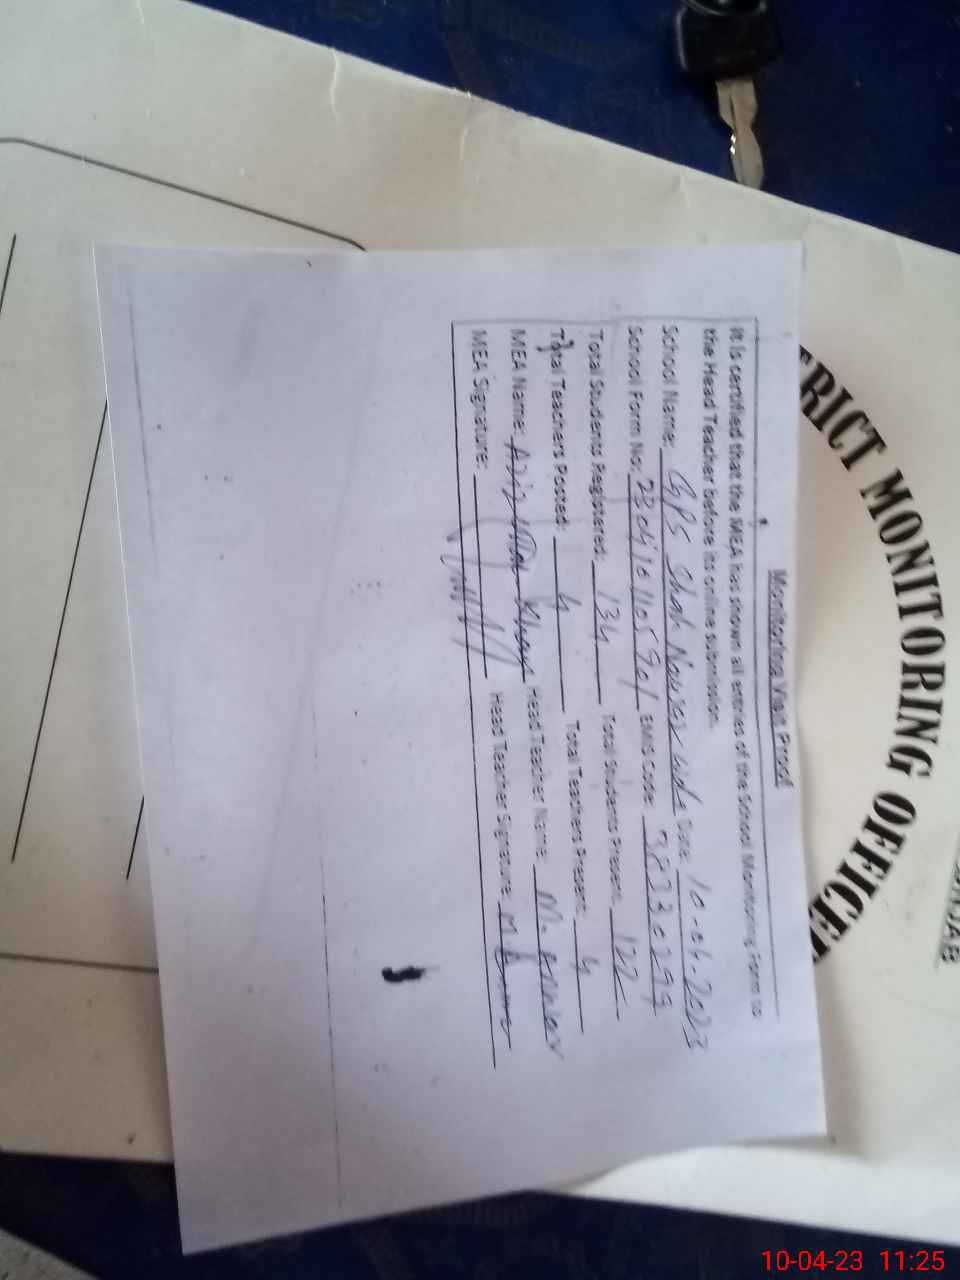 Monitoring Visit Proof
It is certified that the MEA has shown all entries of the School Monitoring Form to
the Head Teacher before its online submission.
School Name: GPS Shah Nawaz Date: 10-04-2023
School Form No: EMIS Code: 38330299
Total Students Registered: 134 Total Students Present: 122
Total Teachers Posted: 4 Total Teachers Present: 4
MEA Name: Head Teacher Name: M.
MEA Signature: Head Teacher Signature: M
MONITORING OFFICE
10-04-23 11:25